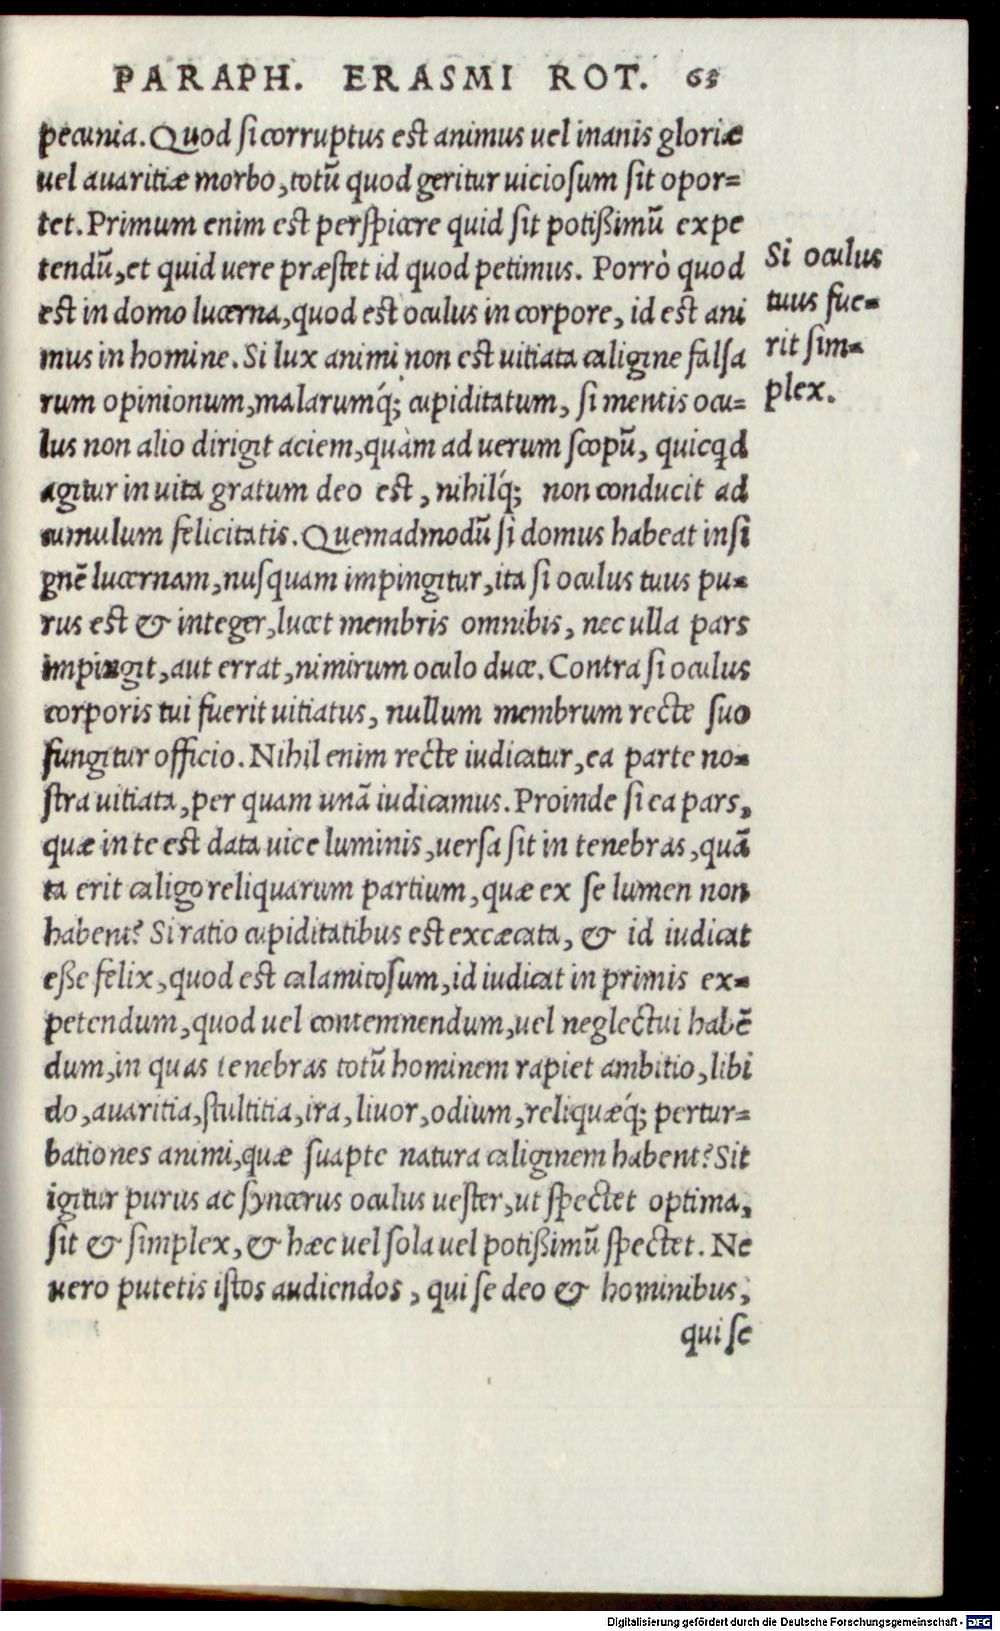 PARAPH. ERASMI ROT. 63
pecunia. Quod si corruptus est animus uel inanis gloriæ
uel auaritiæ morbo, totũ quod geritur uiciosum sit opor=
tet. Primum enim est perspicere quid sit potißimũ expe
tendũ, et quid uere præstet id quod petimus. Porrò quod
est in domo lucerna, quod est oculus in corpore, id est ani
mus in homine. Si lux animi non est uitiata caligine falsa
rum opinionum, malarumq́; cupiditatum, si mentis ocu=
lus non alio dirigit aciem, quàm ad uerum scopũ, quicqd
agitur in uita gratum deo est, nihilq́; non conducit ad
cumulum felicitatis. Quemadmodũ si domus habeat insi
gnẽ lucernam, nusquam impingitur, ita si oculus tuus pu=
rus est & integer, lucet membris omnibis, nec ulla pars
impingit, aut errat, nimirum oculo duce. Contra si oculus
corporis tui fuerit uitiatus, nullum membrum recte suo
fungitur officio. Nihil enim recte iudicatur, ea parte no=
stra uitiata, per quam unã iudicamus. Proinde si ea pars,
quæ in te est data uice luminis, uersa sit in tenebras, quã
ta erit caligo reliquarum partium, quæ ex se lumen non
habent? Si ratio cupiditatibus est excæcata, & id iudicat
eße felix, quod est calamitosum, id iudicat in primis ex=
petendum, quod uel contemnendum, uel neglectui habẽ
dum, in quas tenebras totũ hominem rapiet ambitio, libi
do, auaritia, stultitia, ira, liuor, odium, reliquæq́; pertur=
bationes animi, quæ suapte natura caliginem habent? Sit
igitur purus ac syncerus oculus uester, ut spectet optima,
sit & simplex, & hæc uel sola uel potißimũ spectet. Ne
uero putetis istos audiendos, qui se deo & hominibus,
qui se
Si oculus
tuus fue=
rit sim=
plex.
Digitalisierung gefördert durch die Deutsche Forschungsgemeinschaft - DFG